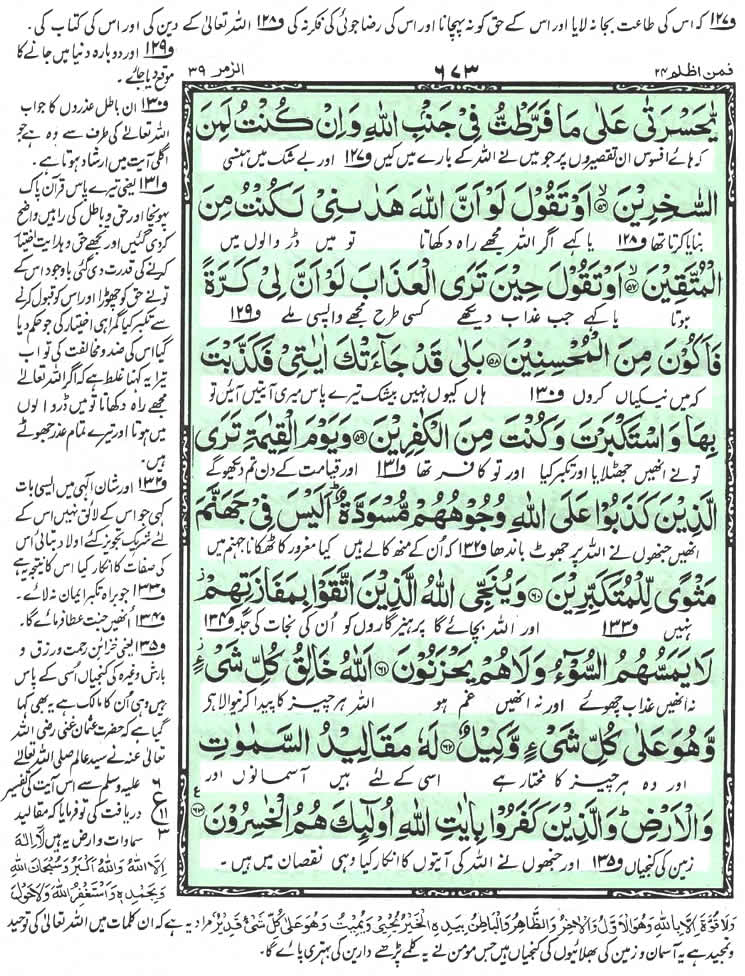 و۱۲۷ کہ اس کی طاعت بجا نہ لایا اور اس کے حق کو نہ پہچانا اور اس کی رضا جوئی کی فکر نہ کی و۱۲۸ اللہ تعالیٰ کے دین کی اور اس کی کتاب کی۔
و۱۲۹ اور دوبارہ دنیا میں جانے کا
موقع دیا جائے۔
و۱۳۰ ان باطل عذروں کا جواب
اللہ تعالےٰ کی طرف سے وہ ہے جو
اگلی آیت میں ارشاد ہوتا ہے۔
و۱۳۱ یعنی تیرے پاس قرآن پاک
پہونچا اور حق و باطل کی راہیں واضح
کردی گئیں اور تجھے حق و ہدایت اختیار
کرنے کی قدرت دی گئی باوجود اس کے
تو نے حق کو چھوڑا اور اس کو قبول کرنے
سے تکبر کیا گمراہی اختیار کی جو حکم دیا
گیا اس کی ضد و مخالفت کی تو اب
تیرا یہ کہنا غلط ہے کہ اگر اللہ تعالےٰ
مجھے راہ دکھاتا تو میں ڈر والوں
میں ہوتا اور تیرے تمام عذر جھوٹے
ہیں۔
و۱۳۲ اور شان الٰہی میں ایسی بات
کہی جو اس کے لائق نہیں اس کے
لئے شریک تجویز کئے اولاد بتائی اس
کی صفات کا انکار کیا اس کا نتیجہ یہ ہے
و۱۳۳ جو براہ تکبر ایمان نہ لائے۔
و۱۳۴ انھیں جنت عطا فرمائے گا۔
و۱۳۵ یعنی خزائن رحمت و رزق و
بارش وغیرہ کی کنجیاں اسی کے پاس
ہیں وہی اُن کا مالک ہے یہ بھی کہا
گیا ہے کہ حضرت عثمان غنی رضی اللہ
تعالیٰ عنہ نے سید عالم صلی اللہ تعالےٰ
علیہ وسلم سے اس آیت کی تفسیر
دریافت کی تو فرمایا کہ مقالید
سماوات و ارض یہ ہیں لَآ اِلٰہَ
اِلَّا اللہُ وَاللہُ اَکْبَرُ وَسُبْحَانَ اللہِ
وَبِحَمْدِہٖ وَاَسْتَغْفِرُ اللہَ وَلَاحَوْلَ
فمن اظلم ۲۴
۶۷۳
الزمر ۳۹
یّٰحَسْرَتٰی عَلٰی مَا فَرَّطْتُّ فِیْ جَنْۢبِ اللہِ وَاِنْ کُنْتُ لَمِنَ
کہ ہائے افسوس ان تقصیروں پر جو میں نے اللہ کے بارے میں کیں و۱۲۷ اور بے شک میں ہنسی
السّٰخِرِیْنَ ﴿۵۶﴾ اَوْ تَقُوْلَ لَوْ اَنَّ اللہَ ھَدٰىنِیْ لَکُنْتُ مِنَ
بنایا کرتا تھا و۱۲۸ یا کہے اگر اللہ مجھے راہ دکھاتا تو میں ڈر والوں میں
الْمُتَّقِیْنَ ﴿۵۷﴾ اَوْ تَقُوْلَ حِیْنَ تَرَی الْعَذَابَ لَوْ اَنَّ لِیْ کَرَّۃً
ہوتا یا کہے جب عذاب دیکھے کسی طرح مجھے واپسی ملے و۱۲۹
فَاَکُوْنَ مِنَ الْمُحْسِنِیْنَ ﴿۵۸﴾ بَلٰی قَدْ جَآءَتْکَ اٰیٰتِیْ فَکَذَّبْتَ
کہ میں نیکیاں کروں و۱۳۰ ہاں کیوں نہیں بیشک تیرے پاس میری آیتیں آئیں تو
بِھَا وَاسْتَکْبَرْتَ وَکُنْتَ مِنَ الْکٰفِرِیْنَ ﴿۵۹﴾ وَیَوْمَ الْقِیٰمَۃِ تَرَی
تو نے انھیں جھٹلایا اور تکبر کیا اور تو کافر تھا و۱۳۱ اور قیامت کے دن تم دیکھو گے
الَّذِیْنَ کَذَبُوْا عَلَی اللہِ وُجُوْھُھُمْ مُّسْوَدَّۃٌ ؕ اَلَیْسَ فِیْ جَھَنَّمَ
انھیں جنھوں نے اللہ پر جھوٹ باندھا و۱۳۲ کہ اُن کے منھ کالے ہیں کیا مغرور کا ٹھکانا جہنم میں
مَثْوًی لِّلْمُتَکَبِّرِیْنَ ﴿۶۰﴾ وَیُنَجِّی اللہُ الَّذِیْنَ اتَّقَوْا بِمَفَازَتِھِمْ
نہیں و۱۳۳ اور اللہ بچائے گا پرہیزگاروں کو اُن کی نجات کی جگہ و۱۳۴
لَا یَمَسُّھُمُ السُّوْٓءُ وَلَا ھُمْ یَحْزَنُوْنَ ﴿۶۱﴾ اَللہُ خَالِقُ کُلِّ شَیْءٍ
نہ انھیں عذاب چھوئے اور نہ انھیں غم ہو اللہ ہر چیز کا پیدا کرنیوالا ہے
وَّھُوَ عَلٰی کُلِّ شَیْءٍ وَّکِیْلٌ ﴿۶۲﴾ لَہٗ مَقَالِیْدُ السَّمٰوٰتِ
اور وہ ہر چیز کا مختار ہے اسی کے لئے ہیں آسمانوں اور
وَالْاَرْضِ ؕ وَالَّذِیْنَ کَفَرُوْا بِاٰیٰتِ اللہِ اُولٰٓئِکَ ھُمُ الْخٰسِرُوْنَ ﴿۶۳﴾
زمین کی کنجیاں و۱۳۵ اور جنھوں نے اللہ کی آیتوں کا انکار کیا وہی نقصان میں ہیں۔
۶
ع
۱۱
۳
وَلَا قُوَّۃَ اِلَّا بِاللہِ وَھُوَ الْاَوَّلُ وَالْاٰخِرُ وَالظَّاھِرُ وَالْبَاطِنُ بِیَدِہِ الْخَیْرُ یُحْیِیْ وَیُمِیْتُ وَھُوَ عَلٰی کُلِّ شَیْءٍ قَدِیْرٌ مراد یہ ہے کہ ان کلمات میں اللہ تعالیٰ کی توحید
و تمجید ہے یہ آسمان و زمین کی بھلائیوں کی کنجیاں ہیں جس مومن نے یہ کلمے پڑھے دارین کی بہتری پائے گا۔